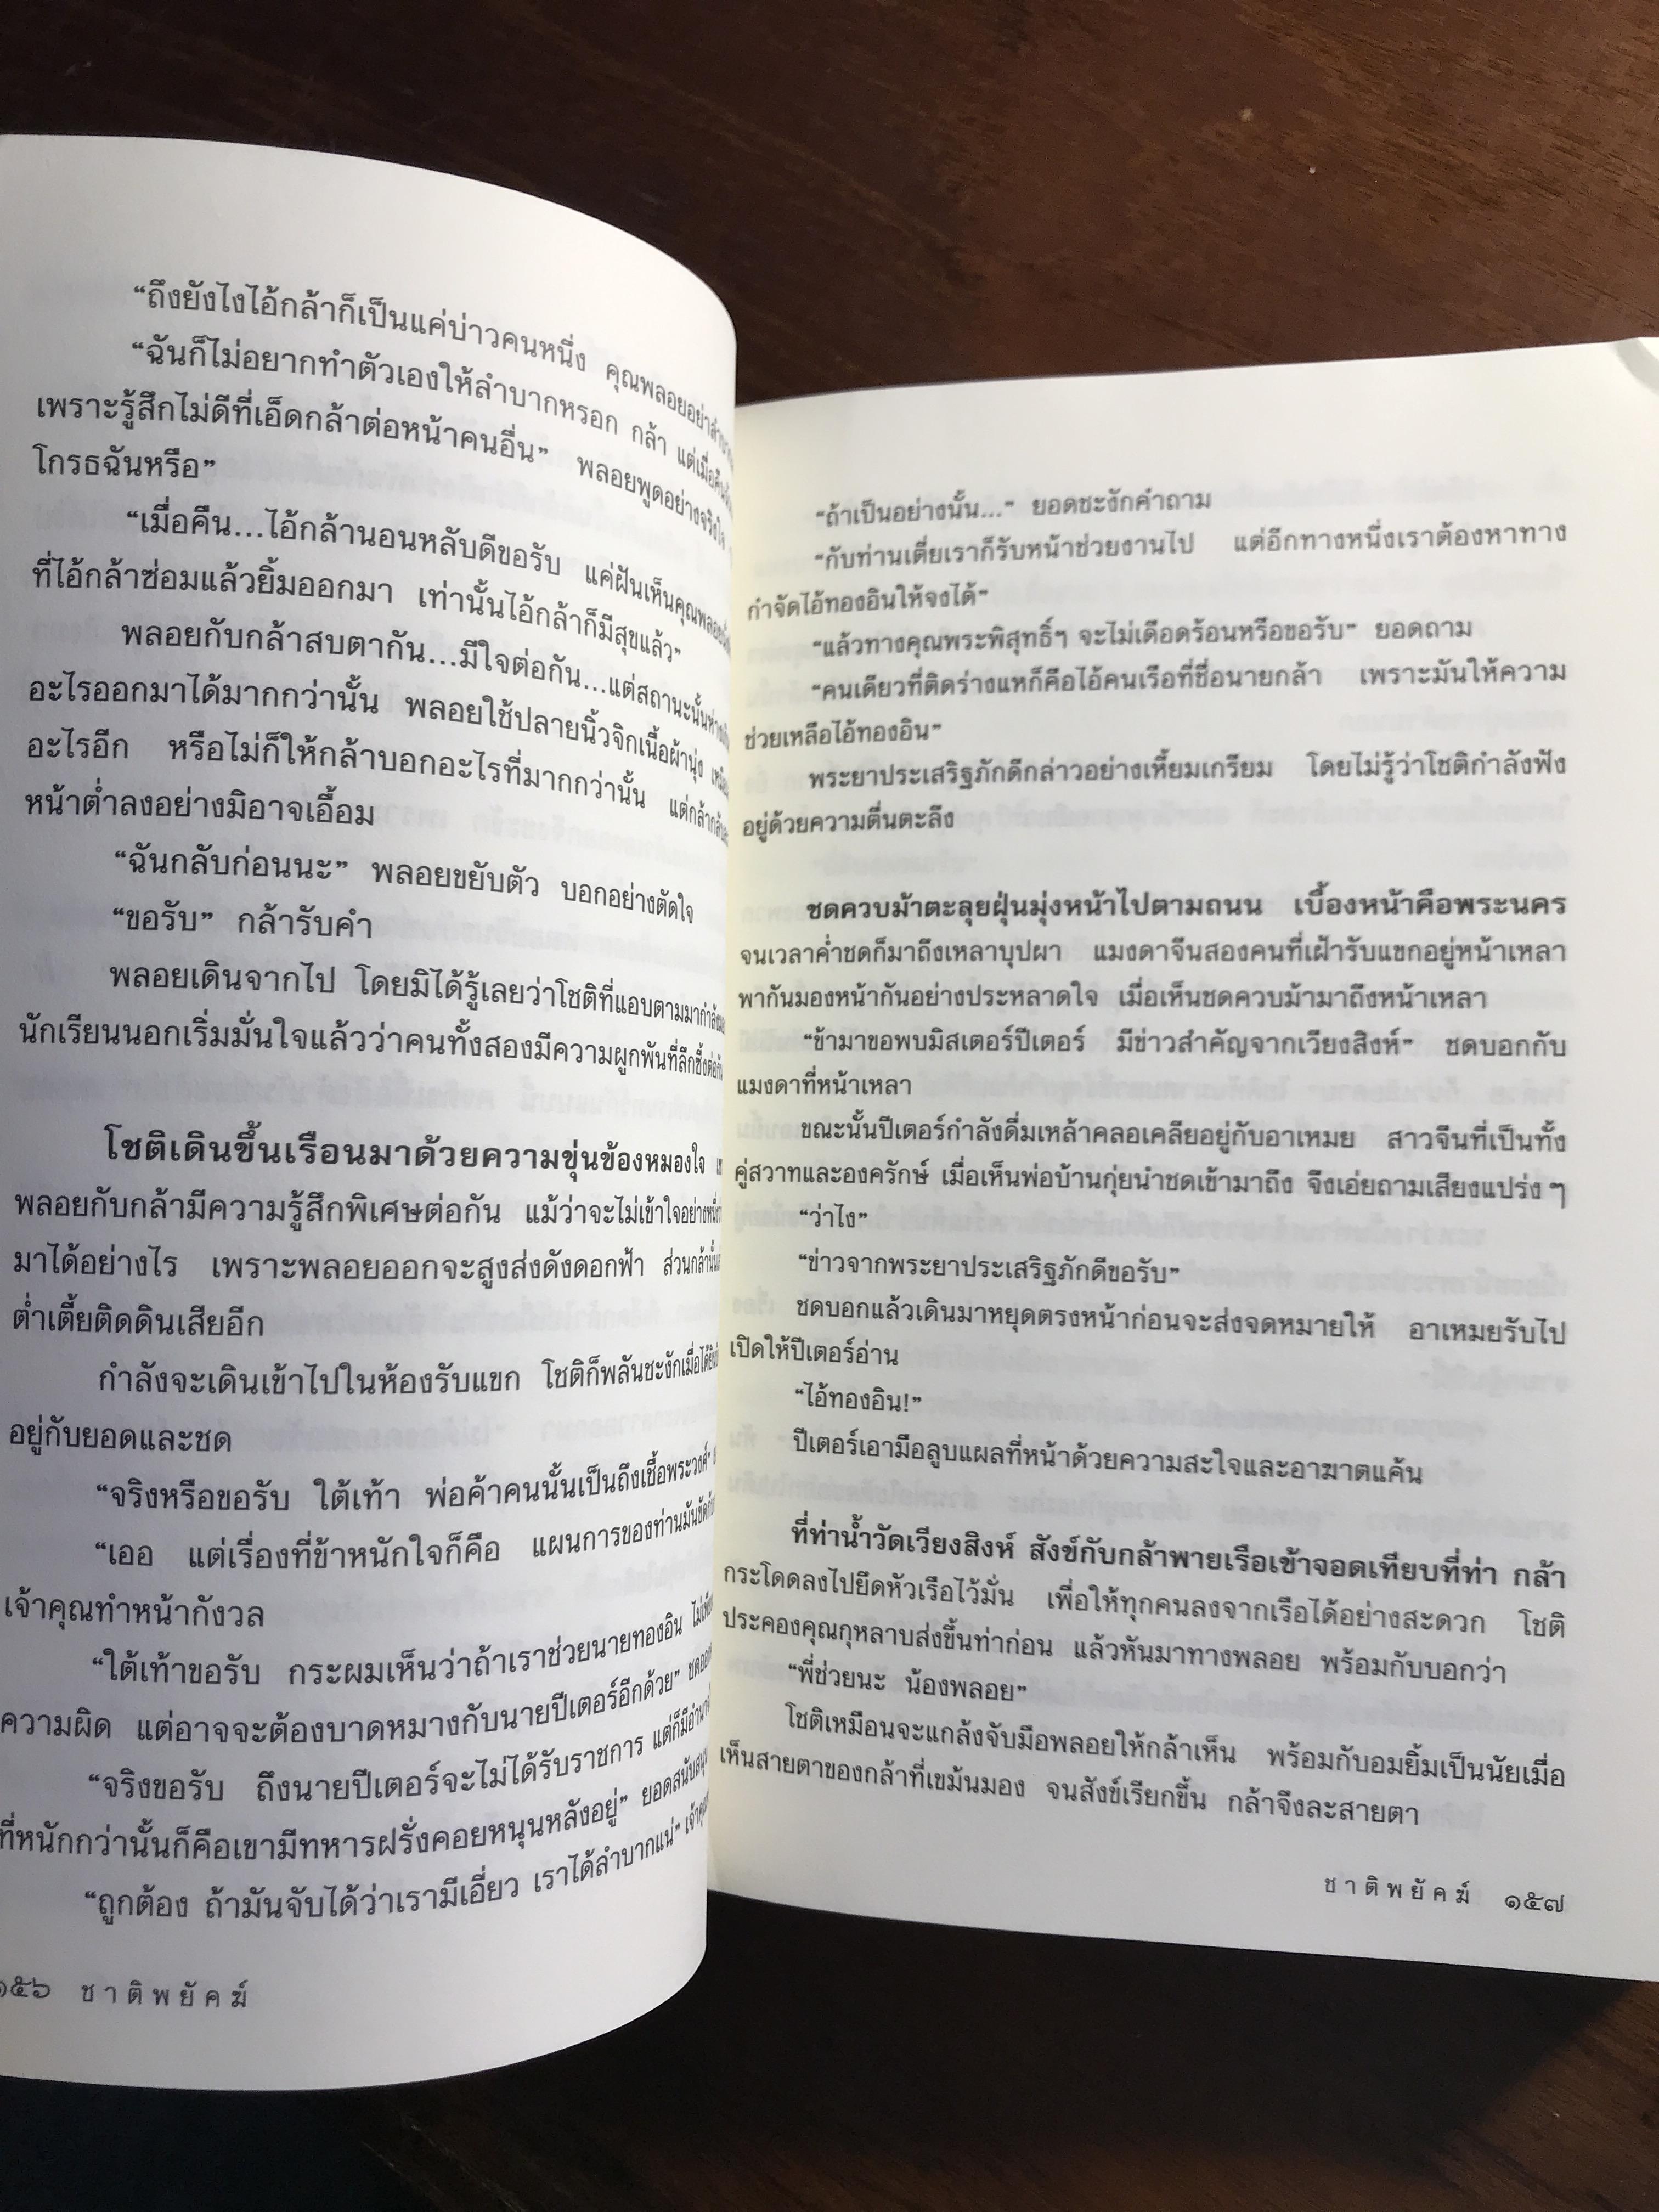 “ถึงยังไงไอ้กล้าก็เป็นแค่บ่าวคนหนึ่ง คุณพลอยอย่า
“ฉันก็ไม่อยากทำตัวเองให้ลำบากหรอก กล้า แต่เมื่อคืน
เพราะรู้สึกไม่ดีที่เอ็ดกล้าต่อหน้าคนอื่น” พลอยพูดอย่างจริงใจ
โกรธฉันหรือ”
“เมื่อคืน...ไอ้กล้านอนหลับดีขอรับ แค่ฝันเห็นคุณพลอย
ที่ไอ้กล้าซ่อมแล้วยิ้มออกมา เท่านั้นไอ้กล้าก็มีสุขแล้ว”
พลอยกับกล้าสบตากัน...มีใจต่อกัน...แต่สถานะนั้น
อะไรออกมาได้มากกว่านั้น พลอยใช้ปลายนิ้วจิกเนื้อผ้านุ่ง
อะไรอีก หรือไม่ก็ให้กล้าบอกอะไรที่มากกว่านั้น แต่กล้า
หน้าต่ำลงอย่างมิอาจเอื้อม
“ฉันกลับก่อนนะ” พลอยขยับตัว บอกอย่างตัดใจ
“ขอรับ” กล้ารับคำ
พลอยเดินจากไป โดยมิได้รู้เลยว่าโชติที่แอบตามมา
นักเรียนนอกเริ่มมั่นใจแล้วว่าคนทั้งสองมีความผูกพันที่ลึกซึ้ง
โชติเดินขึ้นเรือนมาด้วยความขุ่นข้องหมองใจ
พลอยกับกล้ามีความรู้สึกพิเศษต่อกัน แม้ว่าจะไม่เข้าใจ
มาได้อย่างไร เพราะพลอยออกจะสูงส่งดังดอกฟ้า ส่วนกล้า
ต่ำเตี้ยติดดินเสียอีก
กำลังจะเดินเข้าไปในห้องรับแขก โชติก็พลันชะงักเมื่อ
อยู่กับยอดและชด
“จริงหรือขอรับ ใต้เท้า พ่อค้าคนนั้นเป็นถึงเชื้อพระวงศ์”
“เออ แต่เรื่องที่ข้าหนักใจก็คือ แผนการของท่านมัน
เจ้าคุณทำหน้ากังวล
“ใต้เท้าขอรับ กระผมเห็นว่าถ้าเราช่วยนายทองอิน
ความผิด แต่อาจจะต้องบาดหมางกับนายปีเตอร์อีกด้วย”
“จริงขอรับ ถึงนายปีเตอร์จะไม่ได้รับราชการ แต่ก็มี
ที่หนักกว่านั้นก็คือเขามีทหารฝรั่งคอยหนุนหลังอยู่” ยอด
“ถูกต้อง ถ้ามันจับได้ว่าเรามีเอี่ยว เราได้ลำบากแน่”
๑๕๖ ชาติพยัคฆ์
“ถ้าเป็นอย่างนั้น...” ยอดชะงักคำถาม
“กับท่านเตี่ยเราก็รับหน้าช่วยงานไป แต่อีกทางหนึ่งเราต้องหาทาง
กำจัดไอ้ทองอินให้จงได้”
“แล้วทางคุณพระพิสุทธิ์ฯ จะไม่เดือดร้อนหรือขอรับ” ยอดถาม
“คนเดียวที่ติดร่างแหก็คือไอ้คนเรือที่ชื่อนายกล้า เพราะมันให้ความ
ช่วยเหลือไอ้ทองอิน”
พระยาประเสริฐภักดีกล่าวอย่างเหี้ยมเกรียม โดยไม่รู้ว่าโชติกำลังฟัง
อยู่ด้วยความตื่นตะลึง
ชดควบม้าตะลุยฝุ่นมุ่งหน้าไปตามถนน เบื้องหน้าคือพระนคร
จนเวลาค่ำชดก็มาถึงเหลาบุปผา แมงดาจีนสองคนที่เฝ้ารับแขกอยู่หน้าเหลา
พากันมองหน้ากันอย่างประหลาดใจ เมื่อเห็นชดควบม้ามาถึงหน้าเหลา
“ข้ามาขอพบมิสเตอร์ปีเตอร์ มีข่าวสำคัญจากเวียงสิงห์” ชดบอกกับ
แมงดาที่หน้าเหลา
ขณะนั้นปีเตอร์กำลังดื่มเหล้าคลอเคลียอยู่กับอาเหมย สาวจีนที่เป็นทั้ง
คู่สวาทและองครักษ์ เมื่อเห็นพ่อบ้านกุ่ยนำชดเข้ามาถึง จึงเอ่ยถามเสียงแปร่ง ๆ
“ว่าไง”
“ข่าวจากพระยาประเสริฐภักดีขอรับ”
ชดบอกแล้วเดินมาหยุดตรงหน้าก่อนจะส่งจดหมายให้ อาเหมยรับไป
เปิดให้ปีเตอร์อ่าน
“ไอ้ทองอิน!”
ปีเตอร์เอามือลูบแผลที่หน้าด้วยความสะใจและอาฆาตแค้น
ที่ท่าน้ำวัดเวียงสิงห์ สังข์กับกล้าพายเรือเข้าจอดเทียบที่ท่า กล้า
กระโดดลงไปยึดหัวเรือไว้มั่น เพื่อให้ทุกคนลงจากเรือได้อย่างสะดวก โชติ
ประคองคุณกุหลาบส่งขึ้นท่าก่อน แล้วหันมาทางพลอย พร้อมกับบอกว่า
“พี่ช่วยนะ น้องพลอย”
โชติเหมือนจะแกล้งจับมือพลอยให้กล้าเห็น พร้อมกับอมยิ้มเป็นนัยเมื่อ
เห็นสายตาของกล้าที่เขม้นมอง จนสังข์เรียกขึ้น กล้าจึงละสายตา
ชาติพยัคฆ์ ๑๕๗